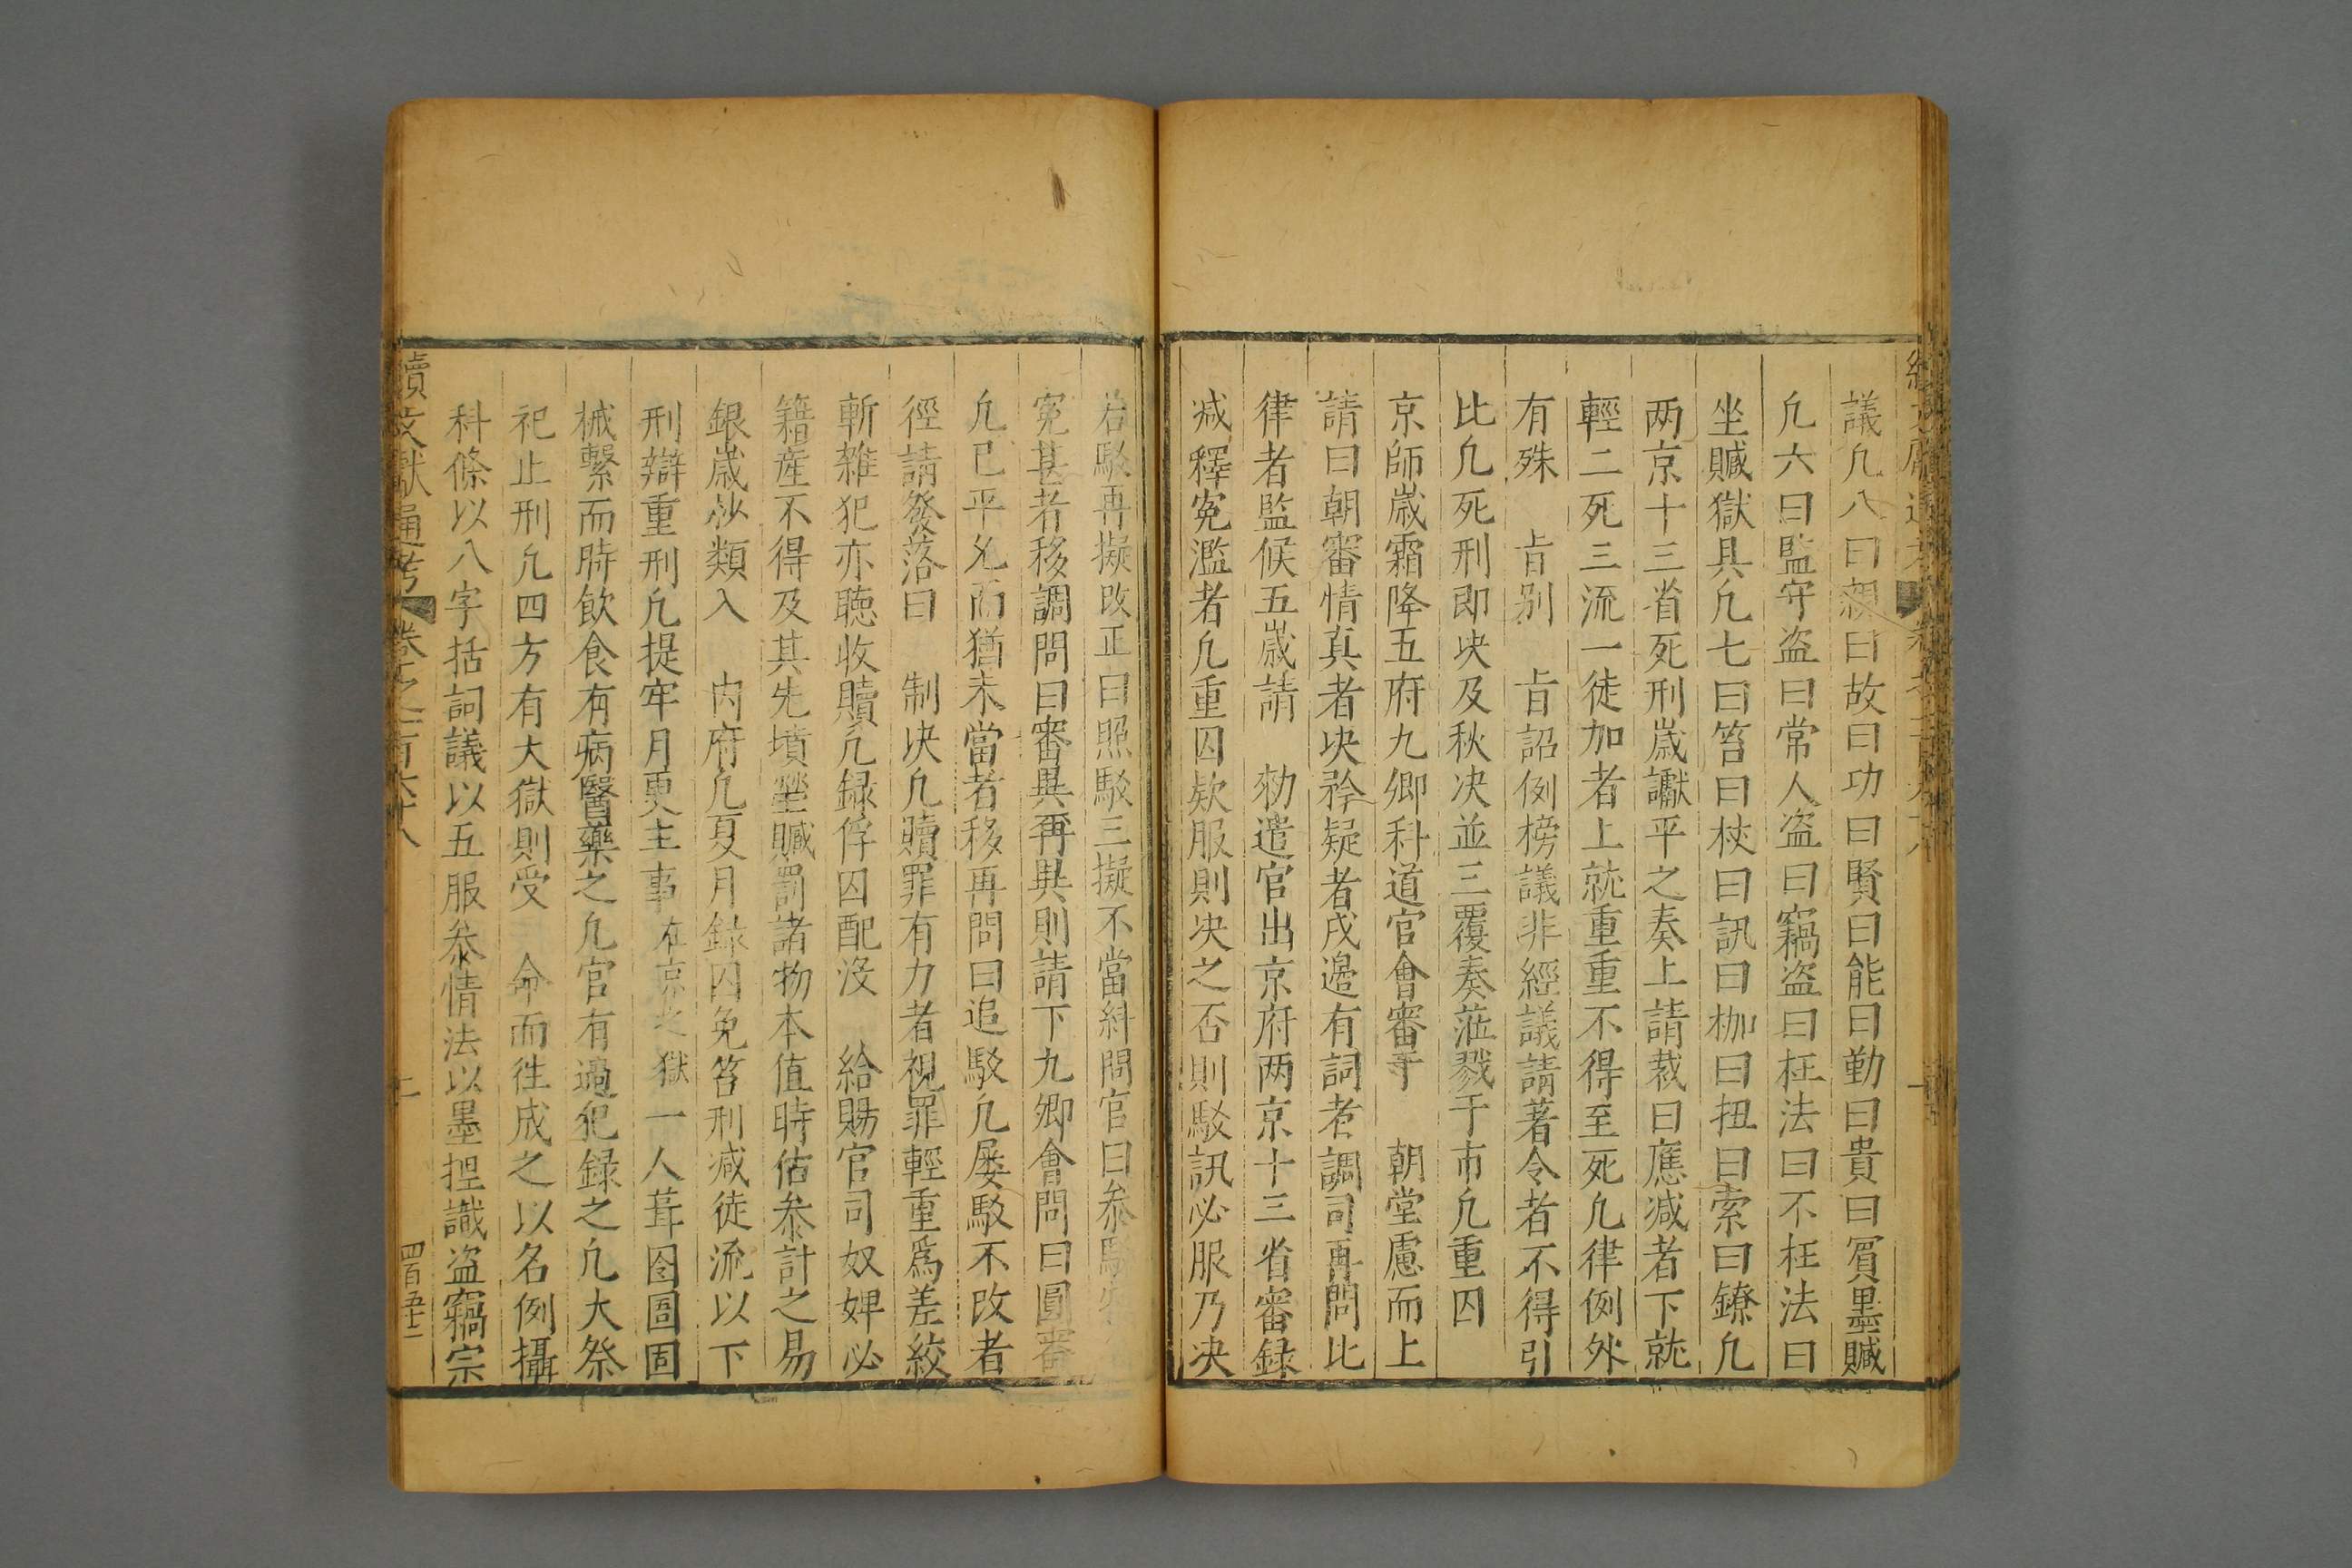 議凡八曰親曰故曰功曰賢曰能曰勤曰貴曰賔墨贓
凡六曰監守盗曰常人盗曰竊盗曰枉法曰不枉法曰
坐贓獄具凡七曰笞曰杖曰訊曰枷曰扭曰索曰鐐凡
两京十三省死刑歳讞平之奏上請裁曰應减者下就
輕二死三流一徒加者上就重重不得至死凡律例外
有殊　㫖别　㫖詔例榜議非經議請著令者不得引
比凡死刑即决及秋决並三覆奏蒞戮于市凡重囚
京師歳霜降五府九卿科道官會審于　朝堂慮而上
請曰朝審情真者决矜疑者戍邊有詞者調司再問比
律者監候五歳請　勑遣官出京府两京十三省審録
减釋寃濫者凡重囚欵服則决之否則駁訊必服乃决
若駁再擬改正曰照駁三擬不當糾問官曰叅駁
寃甚者移調問曰審異再異則請下九卿會問曰圓審
凡已平允而猶未當者移再問曰追駁凡屡駁不改者
徑請發落曰　制决凡贖罪有力者視罪輕重爲差絞
斬雜犯亦聴收贖凡録俘囚配沒　給賜官司奴婢必
籍産不得及其先墳塋贓罰諸物本值時估叅計之易
銀歳抄類入　内府凡夏月録囚免笞刑减徒流以下
刑辯重刑凡提牢月更主事在京之獄一人葺囹圄固
械繫而時飲食有病醫藥之凡官有過犯録之凡大祭
祀止刑凡四方有大獄則受　命而徃成之以名例攝
科條以八字括詞議以五服叅情法以墨揑識盗竊宗
續文獻通考　卷之一百六十八
四百五十二